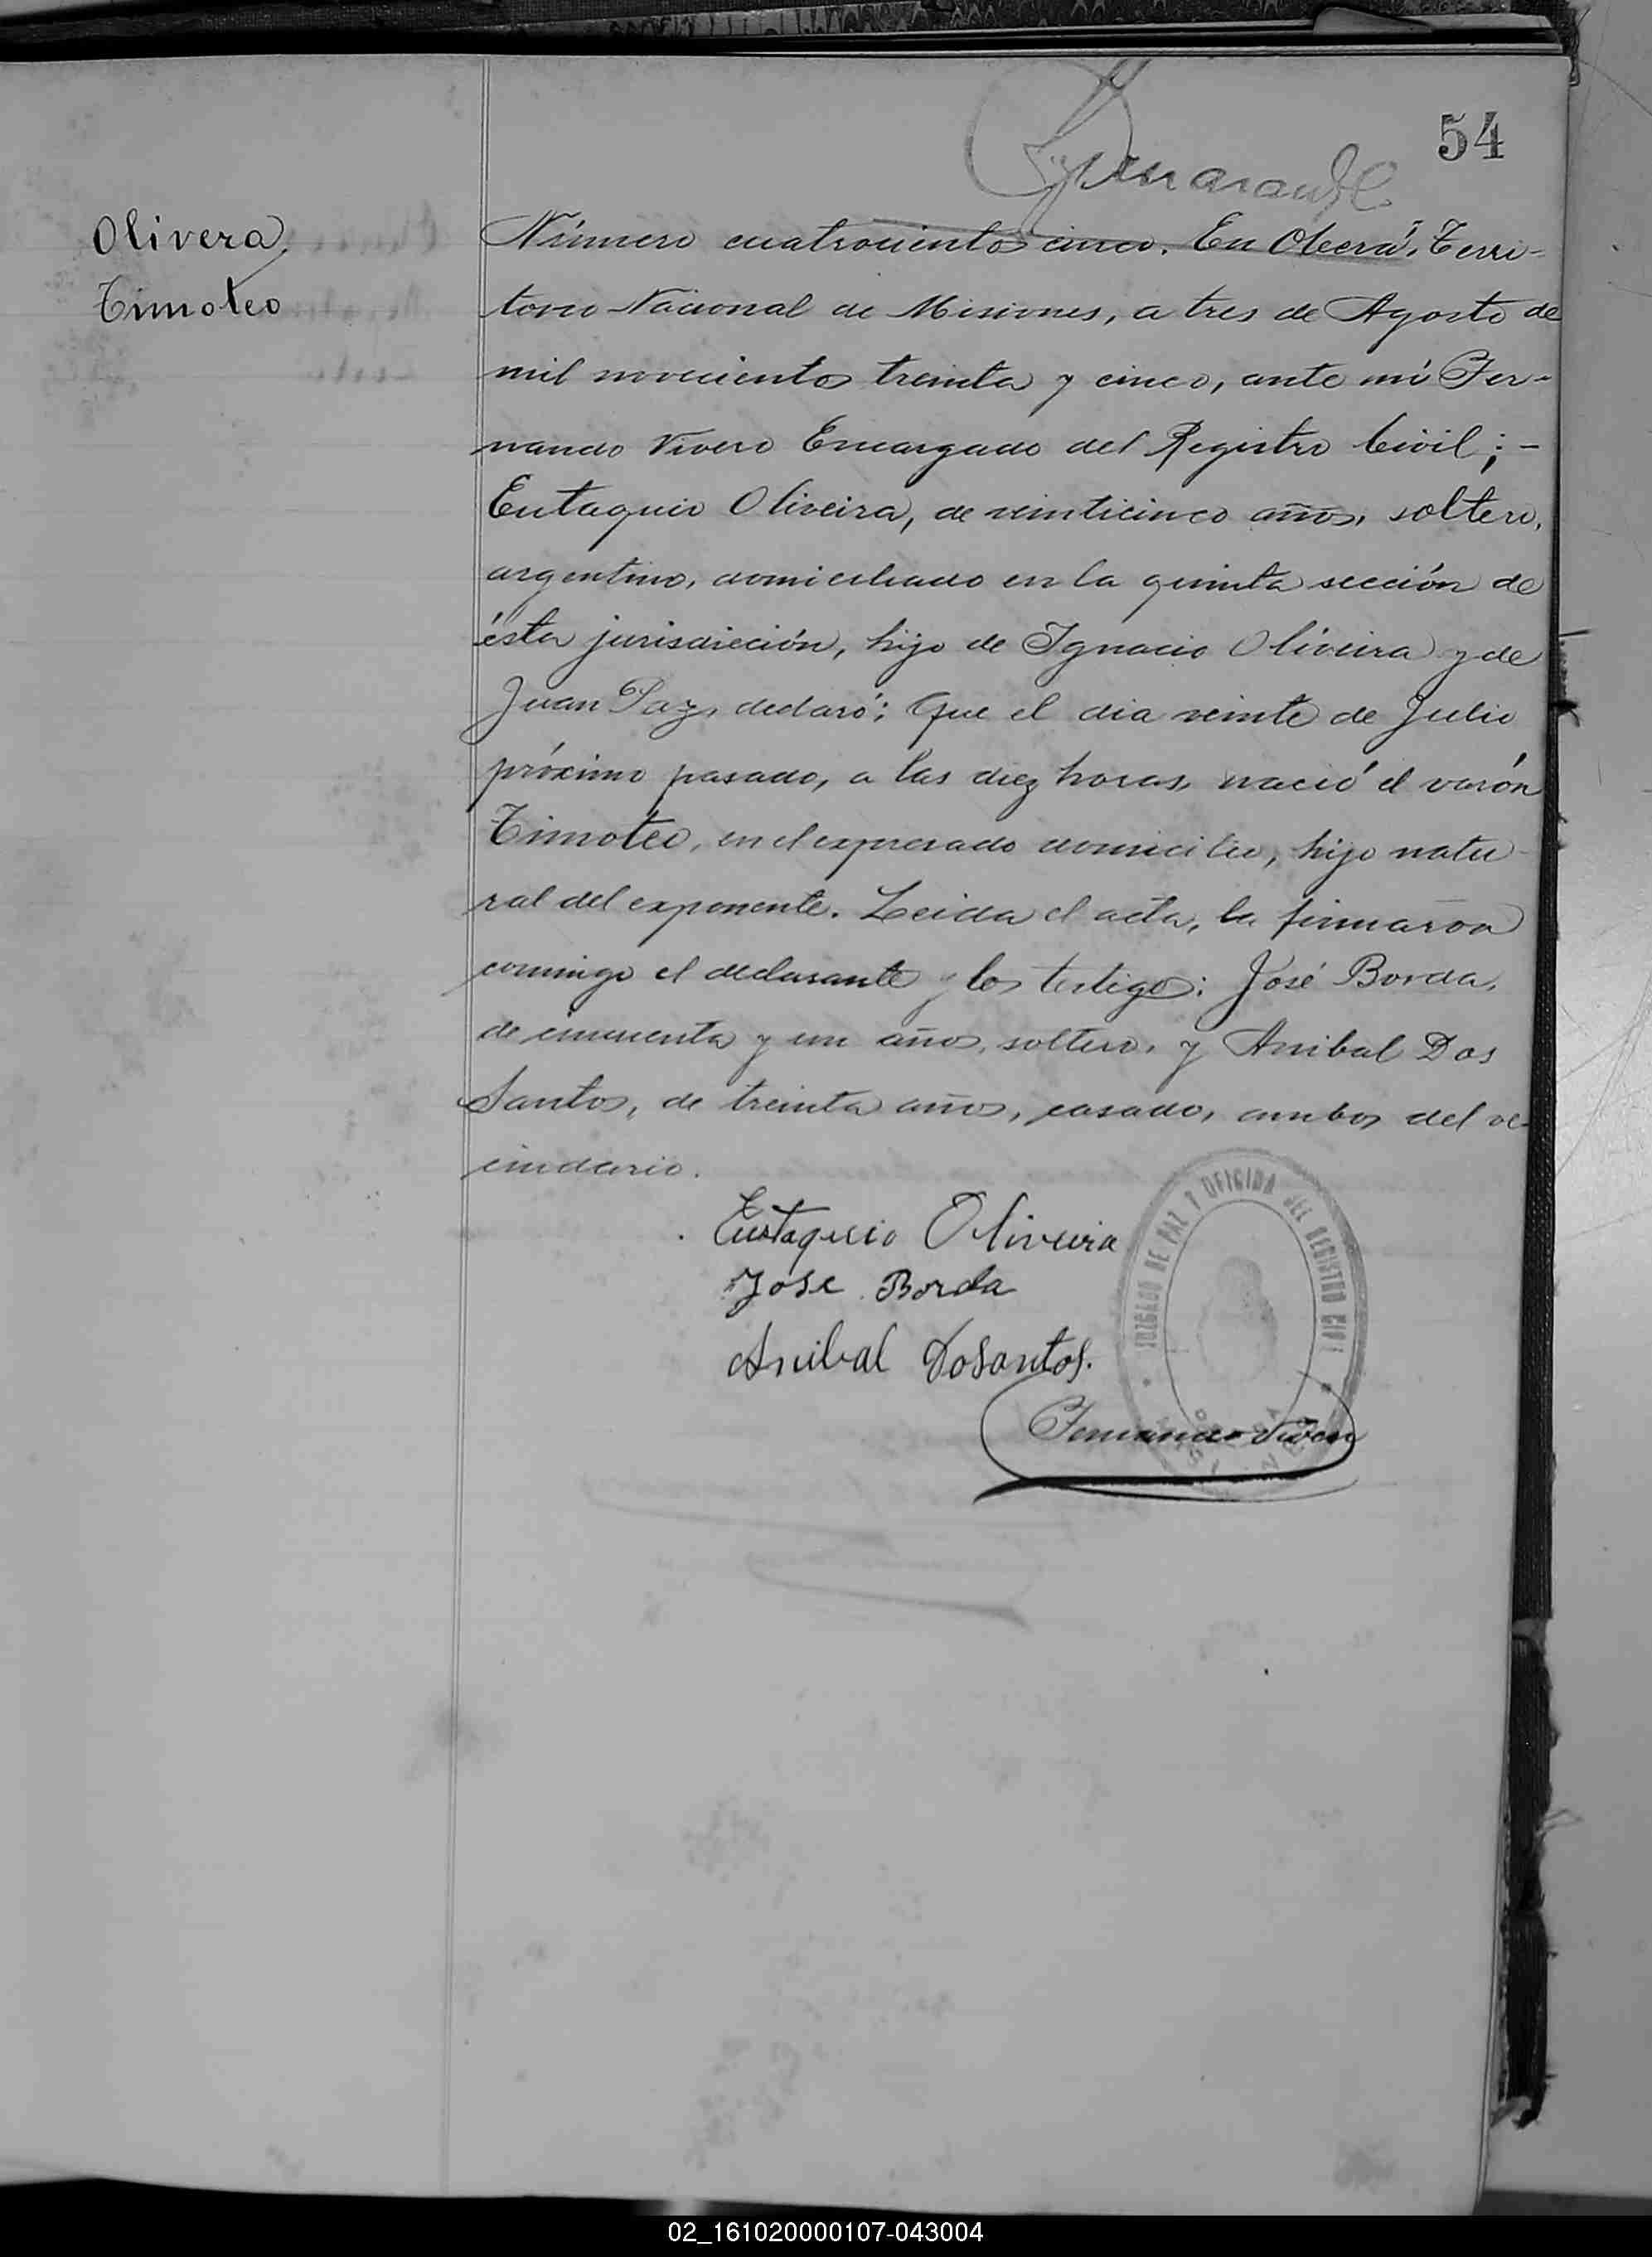 54
Olivera,
Timoteo
Número cuatrocientos cinco. En Oberá, Terri-
torio Nacional de Misiones, a tres de Agosto de
mil novecientos treinta y cinco, ante mí Fer-
nando Vivero Encargado del Registro Civil; -
Eutaquio Oliveira, de veinticinco años, soltero,
argentino, domiciliado en la quinta sección de
ésta jurisdicción, hijo de Ignacio Oliveira y de
Juan Paz, declaró: Que el dia veinte de Julio
próximo pasado, a las diez horas, nació el varón
Timoteo, en el expresado domicilio, hijo natu-
ral del exponente. Leida el acta, la firmaron
conmigo el declarante y los testigos: José Borda,
de cincuenta y un años, soltero, y Anibal Dos
Santos, de treinta años, casado, ambos del ve-
cindario.
Eustaquio Oliveira
Jose Borda
Anibal Dosantos.
JUZGADO DE PAZ Y OFICINA DEL REGISTRO CIVIL
Fernando Vivero
02_161020000107-043004